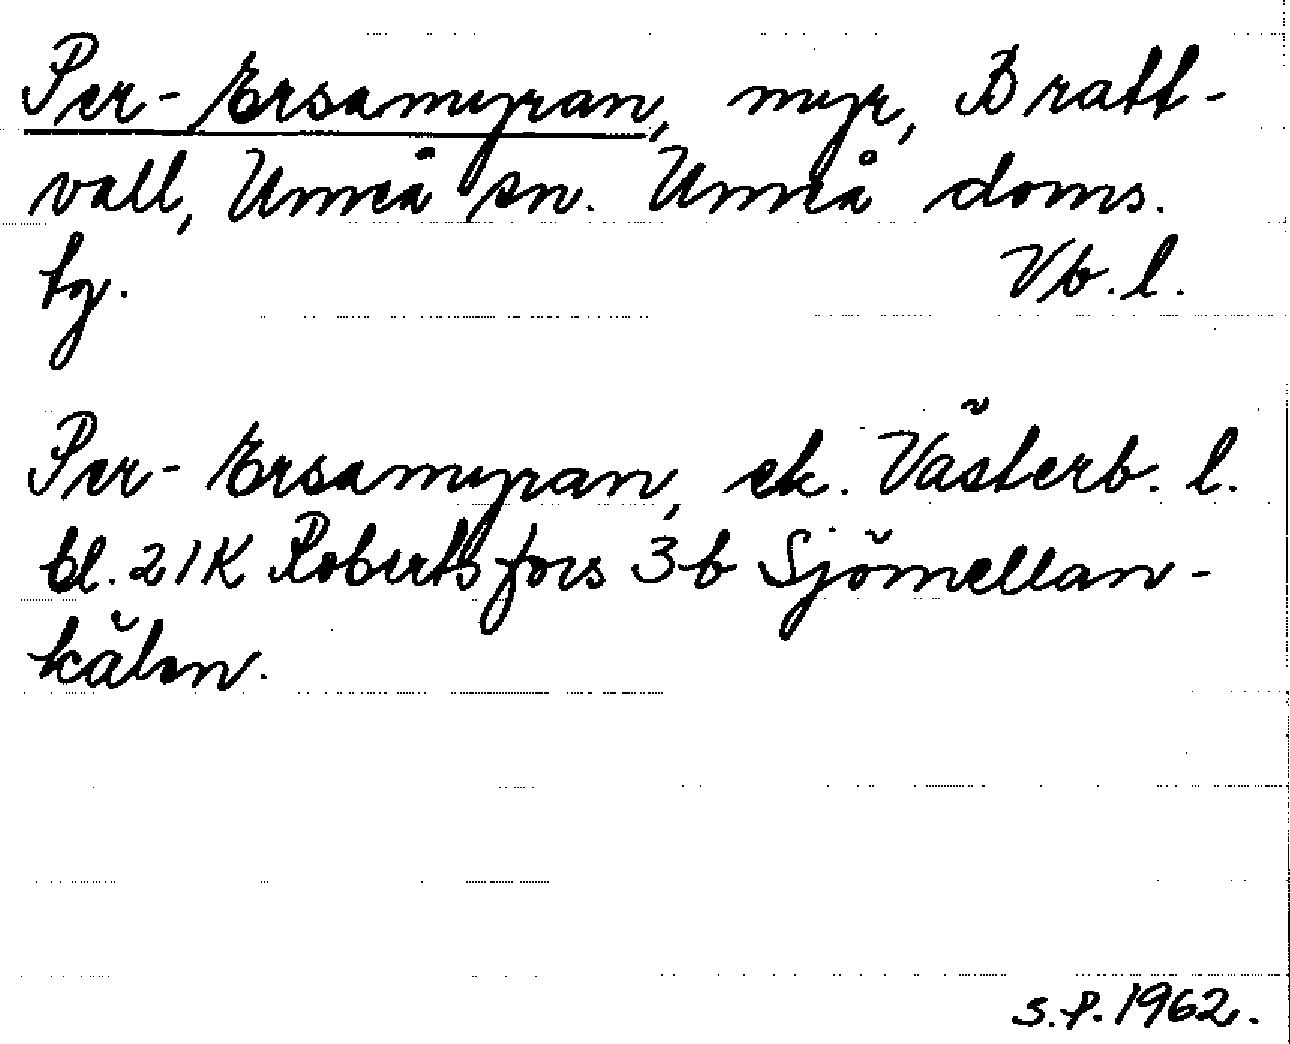 Per-Ersamyran, myr, Bratt-
vall, Umeå sn. Umeå doms.
tg. Vb. l.
Per-Ersamyran, ek. Västerb. l.
bl. 21K Robertsfors 3b Sjömellan-
kälen.
S.P. 1962.